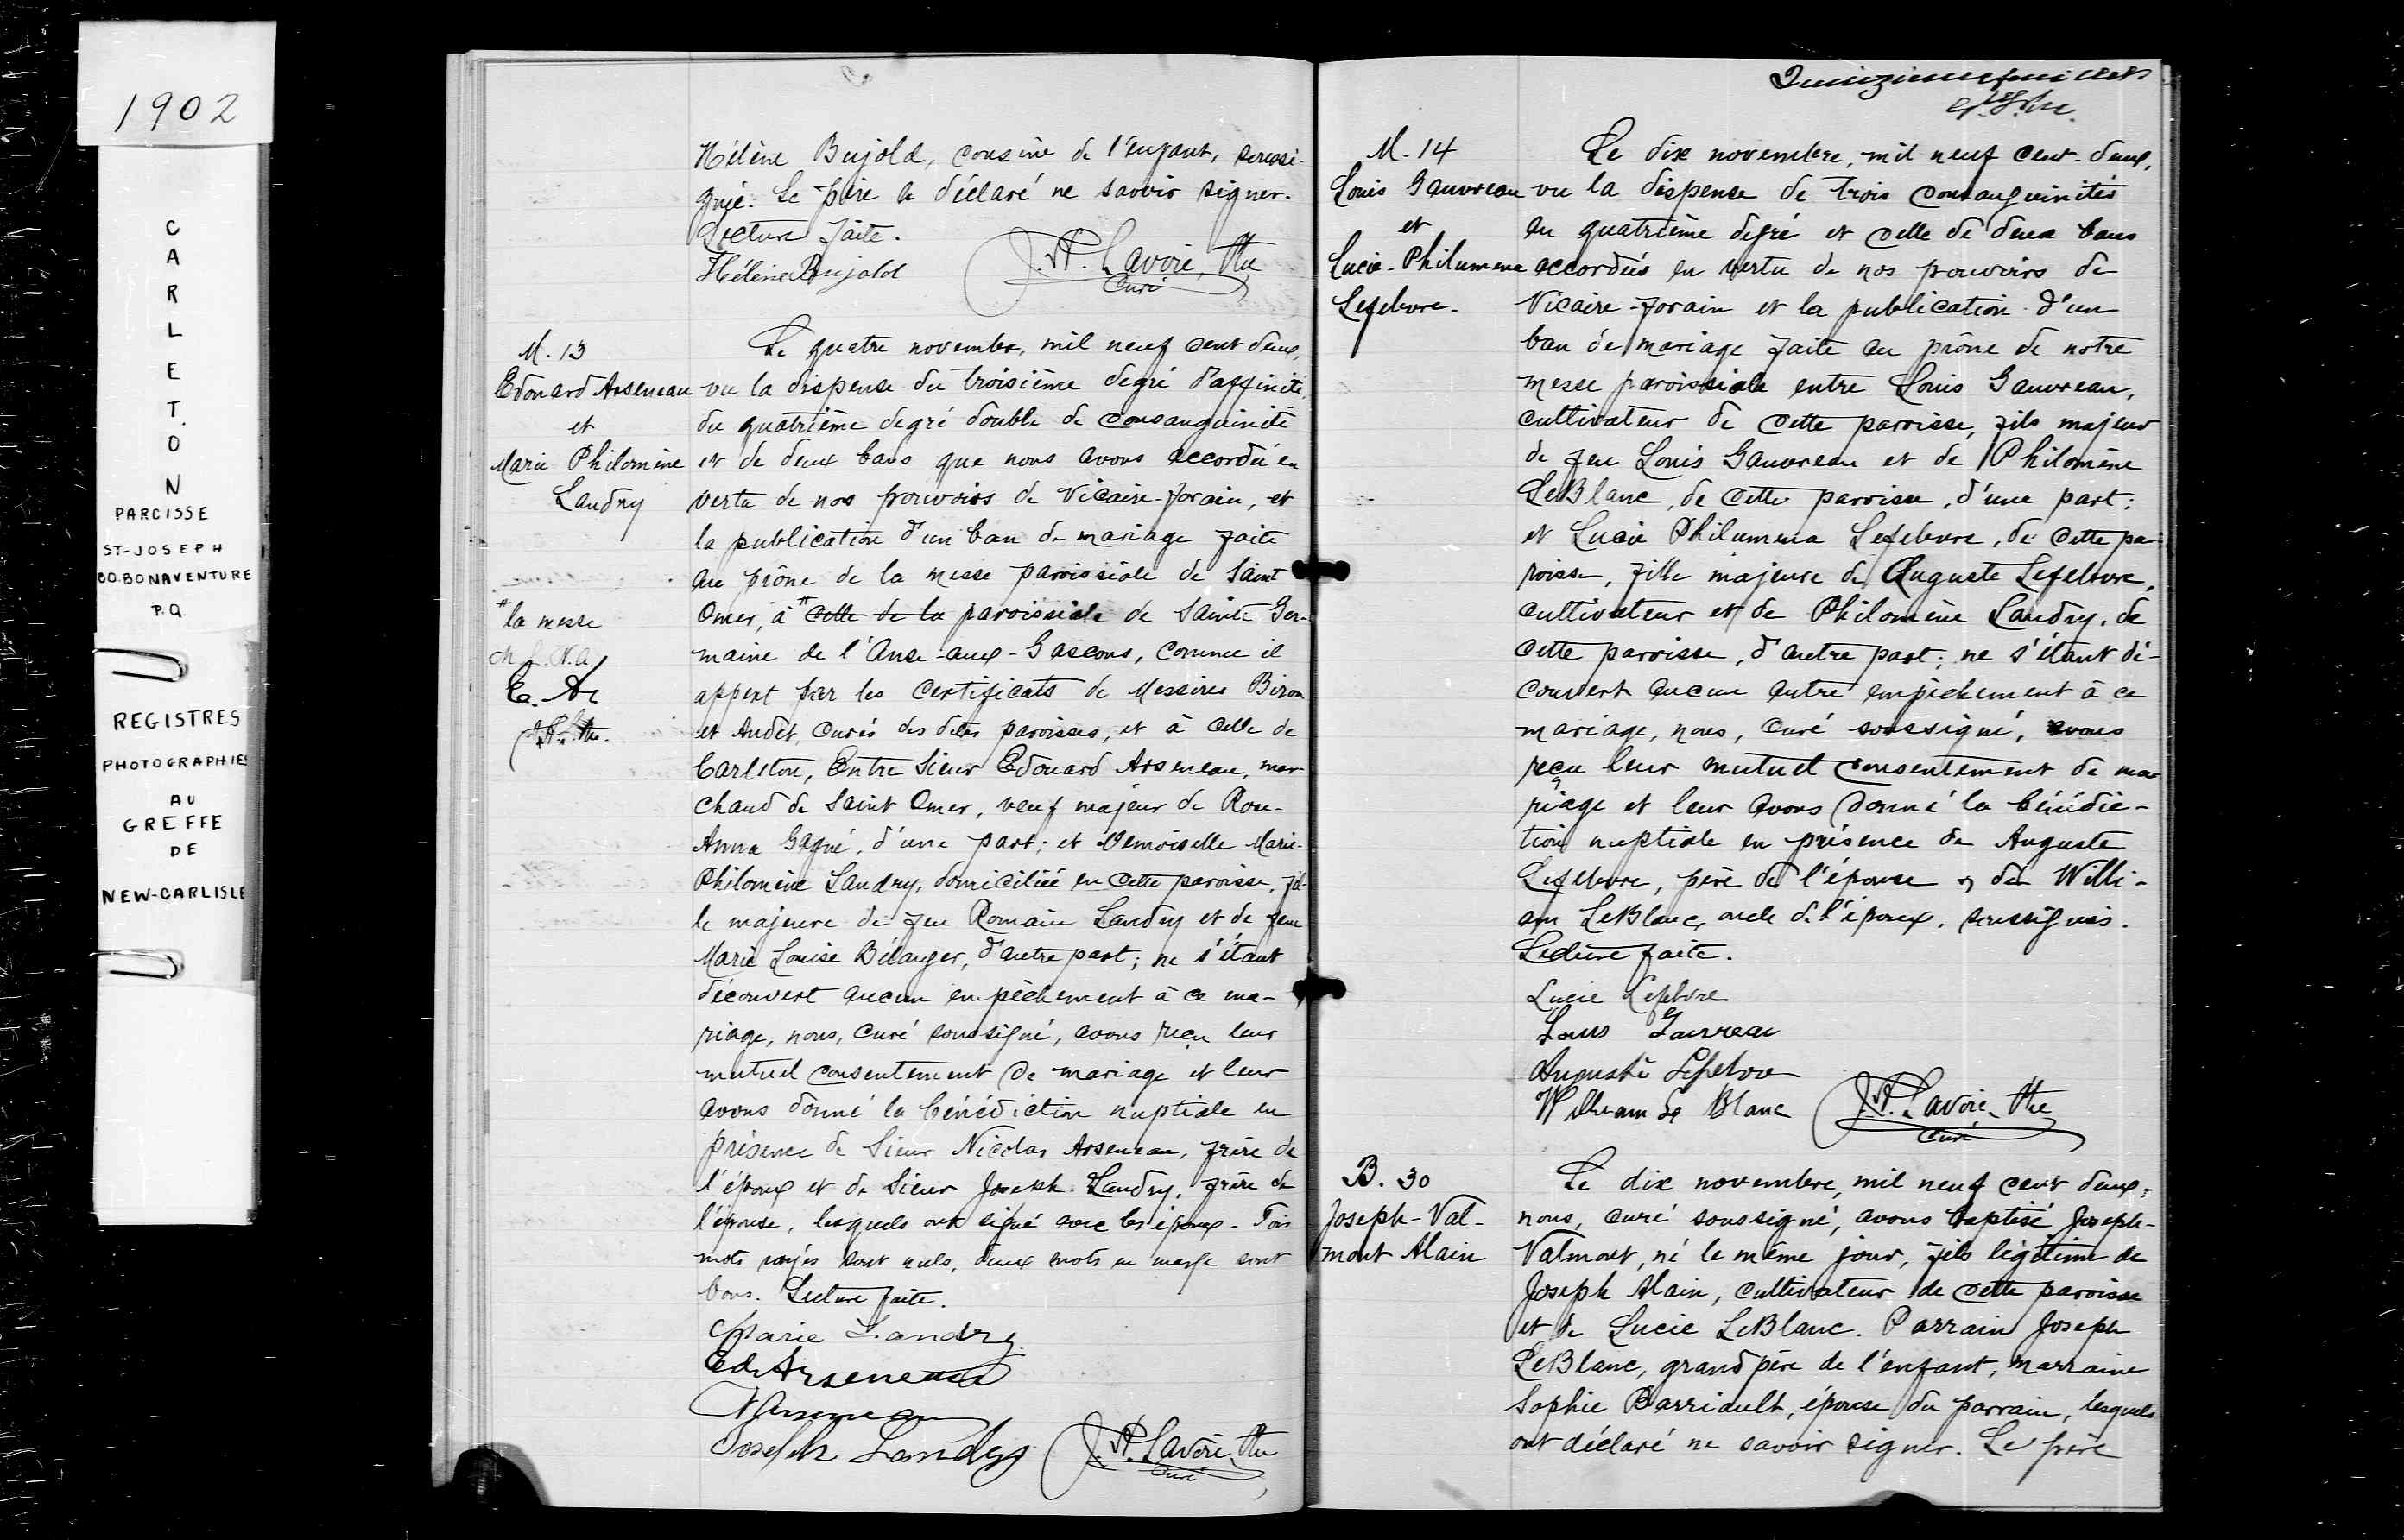 1902
CARLETON
PAROISSE
ST-JOSEPH
CO. BONAVENTURE
P.Q.
REGISTRES
PHOTOGRAPHIES
AU
GREFFE
DE
NEW-CARLISLE
Hélène Bujold, cousine de l'enfant, soussi-
gnée. Le père a déclaré ne savoir signer.
Lecture faite.
Hélène Bujold
J. A. Lavoie, Ptre
Curé
M. 13
Edouard Arseneau
et
Marie Philomène
Landry
Le quatre novembre, mil neuf cent deux,
vu la dispense du troisième degré d'affinité,
du quatrième degré double de consanguinité
et de deux bans que nous avons accordée en
vertu de nos pouvoirs de Vicaire-Forain, et
la publication d'un ban de mariage faite
au prône de la messe paroissiale de Saint
Omer, à # celle de la paroissiale de Sainte Ger-
maine de l'Anse-aux-Gascons, comme il
appert par les certificats de Messires Biron
et Audet, curés des dites paroisses, et à celle de
Carleton, Entre Sieur Edouard Arseneau, mar
chand de Saint Omer, veuf majeur de Rose-
Anna Gagné, d'une part; et Demoiselle Marie-
Philomène Landry, domiciliée en cette paroisse, fil-
le majeure de feu Romain Landry et de feue
Marie Louise Bélanger, d'autre part; ne s'étant
découvert aucun empêchement à ce ma-
riage, nous, curé soussigné, avons reçu leur
mutuel consentement de mariage et leur
avons donné la bénédiction nuptiale en
présence de Sieur Nicolas Arseneau, frère de
l'époux et de Sieur Joseph Landry, frère de
l'épouse, lesquels ont signé avec les époux. Trois
mots rayés sont nuls, deux mots en marge sont
bons. Lecture faite.
# la messe
E. Ar
Marie Landry
Ed. Arseneau
N Arseneau
Joseph Landry
J. A. Lavoie, Ptre
Curé
Quinzième feuillet
M. 14
Louis Gauvreau
et
Lucie-Philumena
Lefebvre.
Le dix novembre, mil neuf cent-deux,
vu la dispense de trois consanguinités
au quatrième degré et celle de deux bans
accordées en vertu de nos pouvoirs de
Vicaire-Forain et la publication d'un
ban de mariage faite au prône de notre
messe paroissiale entre Louis Gauvreau,
cultivateur de cette paroisse, fils majeur
de feu Louis Gauvreau et de Philomène
LeBlanc, de cette paroisse, d'une part;
et Lucie Philumena Lefebvre, de cette pa-
roisse, fille majeure de Auguste Lefebvre,
cultivateur et de Philomène Landry, de
cette paroisse, d'autre part; ne s'étant dé-
couvert aucun autre empêchement à ce
mariage, nous, curé soussigné, avons
reçu leur mutuel consentement de ma
riage et leur avons donné la bénédic-
tion nuptiale en présence de Auguste
Lefebvre, père de l'épouse & de Willi-
am LeBlanc, oncle de l'époux, soussignés.
Lecture faite.
Lucie Lefebvre
Louis Gauvreau
Auguste Lefebvre
William Le Blanc
J. A. Lavoie, Ptre
Curé
B. 30
Joseph-Val-
mont Alain
Le dix novembre, mil neuf cent deux,
nous, curé soussigné, avons baptisé Joseph-
Valmont, né le même jour, fils légitime de
Joseph Alain, cultivateur de cette paroisse
et de Lucie LeBlanc. Parrain Joseph
LeBlanc, grand père de l'enfant, marraine
Sophie Barriault, épouse du parrain, lesquels
ont déclaré ne savoir signer. Le père